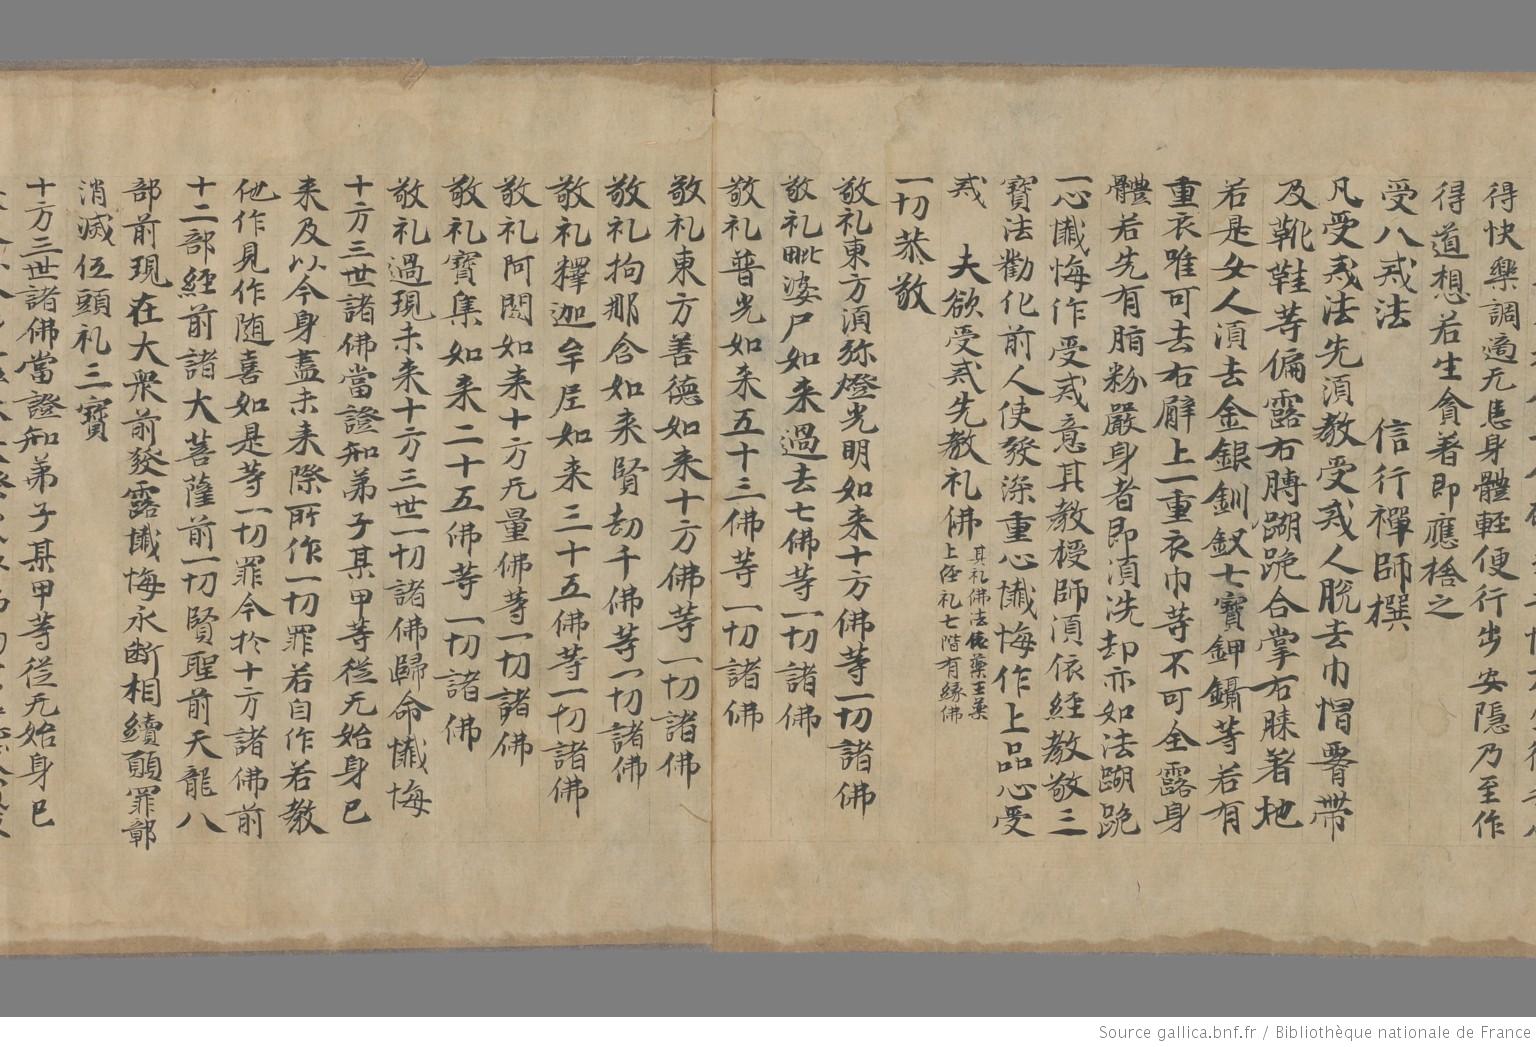 得快樂調適无患身體輕便行步安隱乃至作
得道想若生貪著即應捨之
受八戒法 信行禪師撰
凡受戒法先須教受戒人脫去巾帽帶
及靴鞋等偏露右膊蹦跪合掌右膝著地
若是女人須去金銀釧釵七寶鉀鑷等若有
重衣唯可去右上一重衣巾等不可全露身
體若先有脂粉嚴身者即須洗却亦如法蹦跪
一心懺悔作受戒意其教授師須依經教敬三
寶法勸化前人使發深重心懺悔作上品心受
戒 夫欲受戒先教礼佛
其礼佛法依藥王藥
上經礼七階有緣佛
一切恭敬
敬礼東方須弥燈光明如来十方佛等一切諸佛
敬礼毗婆尸如来過去七佛等一切諸佛
敬礼普光如来五十三佛等一切諸佛
敬礼東方善德如来十方佛等一切諸佛
敬礼拘那含如来賢劫千佛等一切諸佛
敬礼釋迦牟尼如来三十五佛等一切諸佛
敬礼阿閦如来十方无量佛等一切諸佛
敬礼寶集如来二十五佛等一切諸佛
敬礼過現未来十方三世一切諸佛歸命懺悔
十方三世諸佛當證知弟子某甲等從无始身已
来及以今身盡未来際所作一切罪若自作若教
他作見作随喜如是等一切罪今於十方諸佛前
十二部經前諸大菩薩前一切賢聖前天龍八
部前現在大衆前發露懺悔永断相續願罪鄣
消滅伍頭礼三寶
十方三世諸佛當證知弟子某甲等從无始身已
Source gallica.bnf.fr / Bibliothèque nationale de France